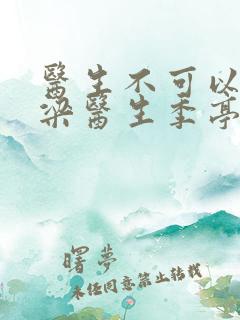 醫生不可以
梁醫生季亭
曙夢
未經同意禁止轉載